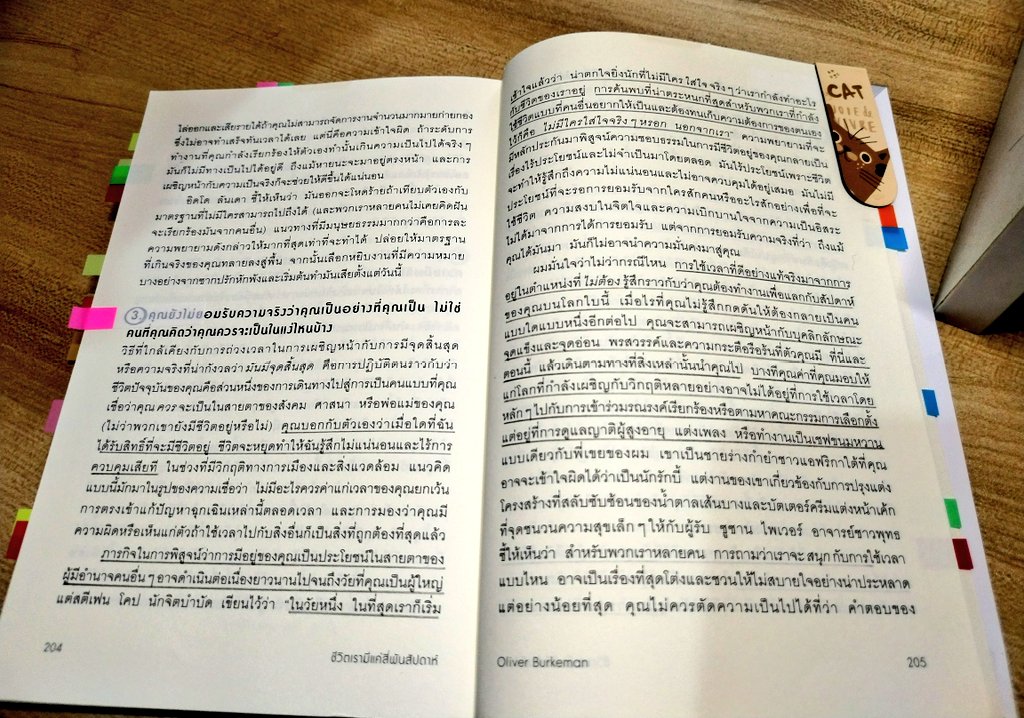 ไล่ออกและเสียรายได้ถ้าคุณไม่สามารถจัดการงานจำนวนมากมายก่ายกอง
ซึ่งไม่อาจทำเสร็จทันเวลาได้เลย แต่นี่คือความเข้าใจผิด ถ้าระดับการ
ทำงานที่คุณกำลังเรียกร้องให้ตัวเองทำนั้นเกินความเป็นไปได้จริง ๆ
มันก็ไม่มีทางเป็นไปได้อยู่ดี ถึงแม้หายนะจะมาอยู่ตรงหน้า และการ
เผชิญหน้ากับความเป็นจริงก็จะช่วยให้ดีขึ้นได้แน่นอน
อิดโด ลันเดา ชี้ให้เห็นว่า มันออกจะโหดร้ายถ้าเทียบตัวเองกับ
มาตรฐานที่ไม่มีใครสามารถไปถึงได้ (และพวกเราหลายคนไม่เคยคิดฝัน
จะเรียกร้องมันจากคนอื่น) แนวทางที่มีมนุษยธรรมมากกว่าคือการละ
ความพยายามดังกล่าวให้มากที่สุดเท่าที่จะทำได้ ปล่อยให้มาตรฐาน
ที่เกินจริงของคุณทลายลงสู่พื้น จากนั้นเลือกหยิบงานที่มีความหมาย
บางอย่างจากซากปรักหักพังและเริ่มต้นทำมันเสียตั้งแต่วันนี้
3. คุณยังไม่ยอมรับความจริงว่าคุณเป็นอย่างที่คุณเป็น ไม่ใช่
คนที่คุณคิดว่าคุณควรจะเป็นในแง่ไหนบ้าง
วิธีที่ใกล้เคียงกับการถ่วงเวลาในการเผชิญหน้ากับการมีจุดสิ้นสุด
หรือความจริงที่น่ากังวลว่า มันมีจุดสิ้นสุด คือการปฏิบัติตนราวกับว่า
ชีวิตปัจจุบันของคุณคือส่วนหนึ่งของการเดินทางไปสู่การเป็นคนแบบที่คุณ
เชื่อว่าคุณ ควร จะเป็นในสายตาของสังคม ศาสนา หรือพ่อแม่ของคุณ
(ไม่ว่าพวกเขายังมีชีวิตอยู่หรือไม่) คุณบอกกับตัวเองว่าเมื่อใดที่ฉัน
ได้รับสิทธิ์ที่จะมีชีวิตอยู่ ชีวิตจะหยุดทำให้ฉันรู้สึกไม่แน่นอนและไร้การ
ควบคุมเสียที ในช่วงที่มีวิกฤติทางการเมืองและสิ่งแวดล้อม แนวคิด
แบบนี้มักมาในรูปของความเชื่อว่า ไม่มีอะไรควรค่าแก่เวลาของคุณยกเว้น
การตรงเข้าแก้ปัญหาฉุกเฉินเหล่านี้ตลอดเวลา และการมองว่าคุณมี
ความผิดหรือเห็นแก่ตัวถ้าใช้เวลาไปกับสิ่งอื่นก็เป็นสิ่งที่ถูกต้องที่สุดแล้ว
ภารกิจในการพิสูจน์ว่าการมีอยู่ของคุณเป็นประโยชน์ในสายตาของ
ผู้มีอำนาจคนอื่น ๆ อาจดำเนินต่อเนื่องยาวนานไปจนถึงวัยที่คุณเป็นผู้ใหญ่
แต่สตีเฟน โคป นักจิตบำบัด เขียนไว้ว่า "ในวัยหนึ่ง ในที่สุดเราก็เริ่ม
204
ชีวิตเรามีแค่สี่พันสัปดาห์
เข้าใจแล้วว่า น่าตกใจยิ่งนักที่ไม่มีใครใส่ใจจริง ๆ ว่าเรากำลังทำอะไร
กับชีวิตของเราอยู่ การค้นพบที่น่าตระหนกที่สุดสำหรับพวกเราที่กำลัง
ใช้ชีวิตแบบที่คนอื่นอยากให้เป็นและต้องทนเก็บความต้องการของตนเอง
ไว้ก็คือ ไม่มีใครใส่ใจจริง ๆ หรอก นอกจากเรา" ความพยายามที่จะ
มีหลักประกันมาพิสูจน์ความชอบธรรมในการมีชีวิตอยู่ของคุณกลายเป็น
เรื่องไร้ประโยชน์และไม่จำเป็นมาโดยตลอด มันไร้ประโยชน์เพราะชีวิต
จะทำให้รู้สึกถึงความไม่แน่นอนและไม่อาจควบคุมได้อยู่เสมอ มันไม่มี
ประโยชน์ที่จะรอการยอมรับจากใครสักคนหรืออะไรสักอย่างเพื่อที่จะ
ใช้ชีวิต ความสงบในจิตใจและความเบิกบานใจจากความเป็นอิสระ
ไม่ได้มาจากการได้การยอมรับ แต่จากการยอมรับความจริงที่ว่า ถึงแม้
คุณได้มันมา มันก็ไม่อาจนำความมั่นคงมาสู่คุณ
ผมมั่นใจว่าไม่ว่ากรณีไหน การใช้เวลาที่ดีอย่างแท้จริงมาจากการ
อยู่ในตำแหน่งที่ ไม่ต้อง รู้สึกราวกับว่าคุณต้องทำงานเพื่อแลกกับสัปดาห์
ของคุณบนโลกใบนี้ เมื่อไรที่คุณไม่รู้สึกกดดันให้ต้องกลายเป็นคน
แบบใดแบบหนึ่งอีกต่อไป คุณจะสามารถเผชิญหน้ากับบุคลิกลักษณะ
จุดแข็งและจุดอ่อน พรสวรรค์และความกระตือรือร้นที่ตัวคุณมี ที่นี่และ
ตอนนี้ แล้วเดินตามทางที่สิ่งเหล่านั้นนำคุณไป บางทีคุณค่าที่คุณมอบให้
แก่โลกที่กำลังเผชิญกับวิกฤติหลายอย่างอาจไม่ได้อยู่ที่การใช้เวลาโดย
หลักๆ ไปกับการเข้าร่วมรณรงค์เรียกร้องหรือตามหาคณะกรรมการเลือกตั้ง
แต่อยู่ที่การดูแลญาติผู้สูงอายุ แต่งเพลง หรือทำงานเป็นเชฟขนมหวาน
แบบเดียวกับพี่เขยของผม เขาเป็นชายร่างกำยำชาวแอฟริกาใต้ที่คุณ
อาจจะเข้าใจผิดได้ว่าเป็นนักรักบี้ แต่งานของเขาเกี่ยวข้องกับการปรุงแต่ง
โครงสร้างที่สลับซับซ้อนของน้ำตาลเส้นบางและบัตเตอร์ครีมแต่งหน้าเค้ก
ที่จุดชนวนความสุขเล็ก ๆ ให้กับผู้รับ ซูซาน ไพเวอร์ อาจารย์ชาวพุทธ
ชี้ให้เห็นว่า สำหรับพวกเราหลายคน การถามว่าเราจะสนุกกับการใช้เวลา
แบบไหน อาจเป็นเรื่องที่สุดโต่งและชวนให้ไม่สบายใจอย่างน่าประหลาด
แต่อย่างน้อยที่สุด คุณไม่ควรตัดความเป็นไปได้ที่ว่า คำตอบของ
Oliver Burkeman
205
CAT